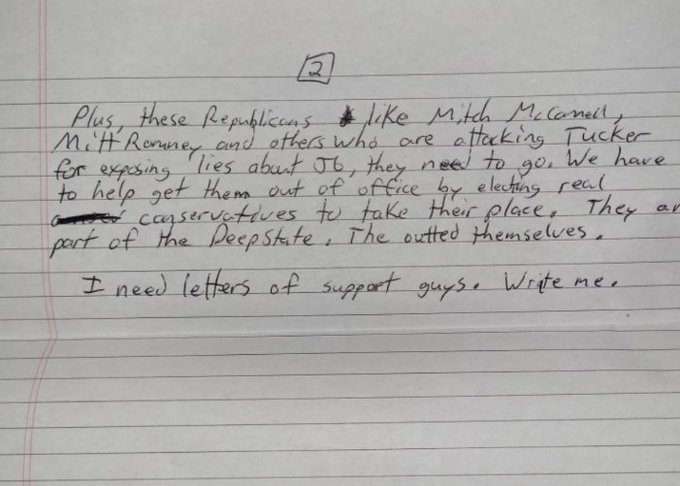 2
Plus, these Republicans like Mitch McConnell,
Mitt Romney and others who are attacking Tucker
for exposing lies about J6, they need to go. We have
to help get them out of office by electing real
conservatives to take their place. They ar
part of the Deep State. The outted themselves.
I need letters of support guys. Write me.